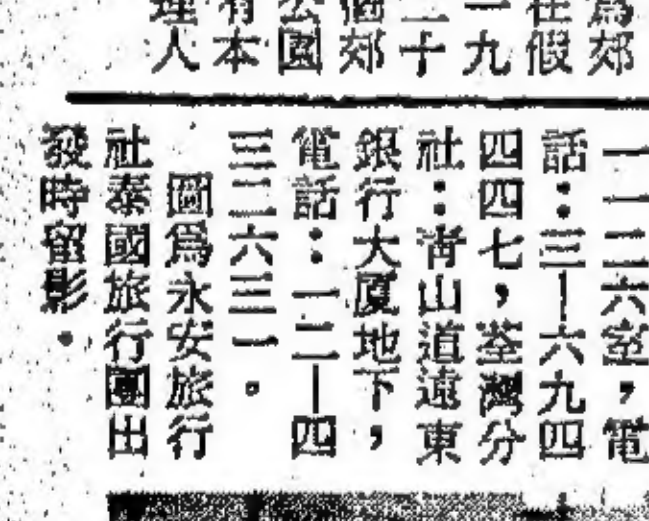 為郊
在假
一九
二十
個郊
公園
有本
理人
一一二六室，電
話：三—六九四
四四七，荃灣分
社：青山道遠東
銀行大厦地下，
電話：一二—四
三二六三一。
圖爲永安旅行
社泰國旅行團出
發時留影。